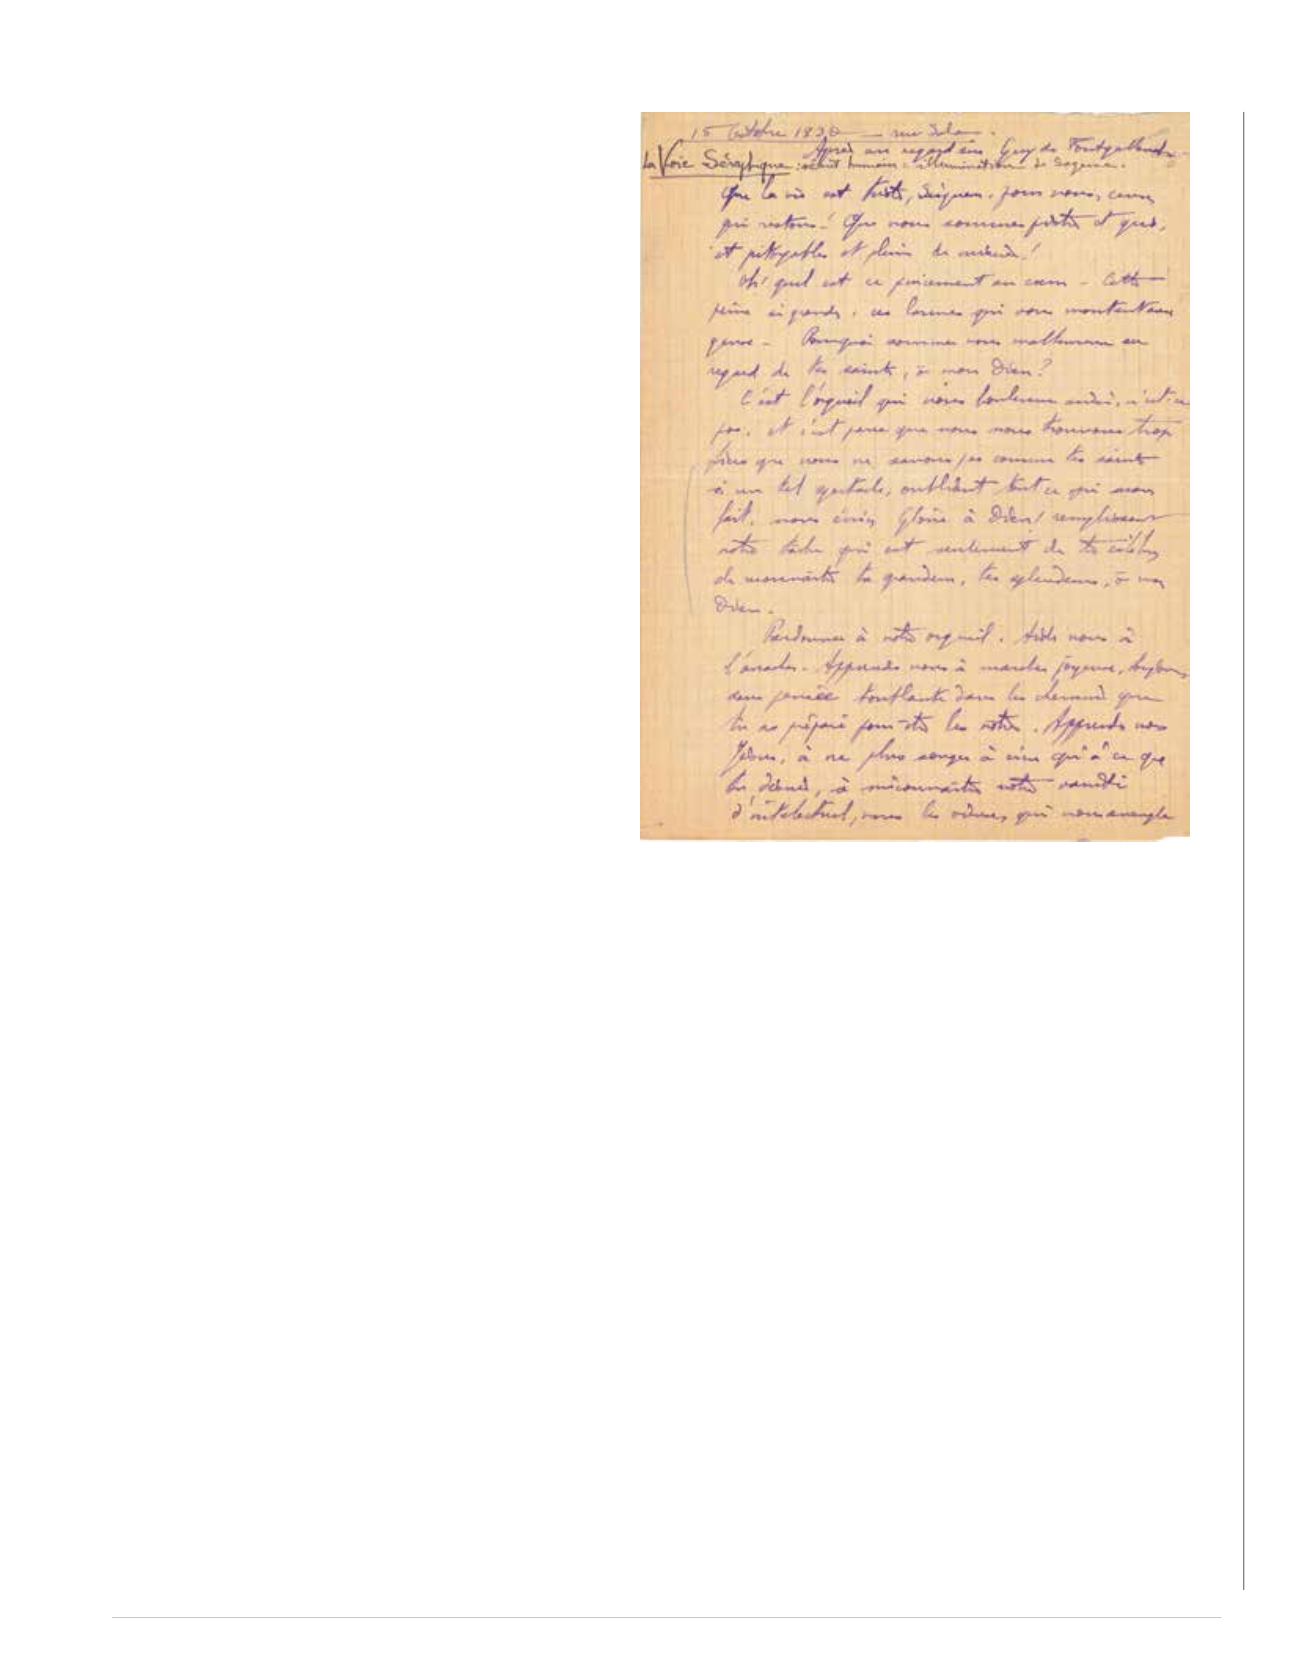 15 Octobre 1930 — rue
Après un regard sur Guy de Fontgalland
La Voie Séraphique : humain : illumination de sagesse.
Que la vie est triste, Seigneur, pour nous, ceux
qui restons ! Que nous sommes piètres et
et pitoyables et pleins de !
Oh ! quel est ce pincement au coeur – Cette
peine si grande, ces larmes qui nous montent aux
Pourquoi sommes nous malheureux au
regard de tes saints, ô mon Dieu ?
C'est l'orgueil qui nous bouleverse ainsi, n'est-ce
pas, et c'est parce que nous nous trouvons trop
que nous ne savons pas comme tes saints
à un tel spectacle, oubliant tout ce qui
fait, nous écrier Gloire à Dieu ! remplissant
notre tâche qui est seulement de te célébrer
de ta grandeur, tes splendeurs, ô mon
Dieu.
Pardonnes à notre orgueil. Aide nous à
l'arracher. Apprends nous à marcher joyeux,
sans pensée dans les chemins que
tu as préparé pour être les nôtres. Apprends nous
Jésus, à ne plus songer à rien qu'à ce que
tu désires, à méconnaître notre vanité
d'intelectuel, qui nous aveugle